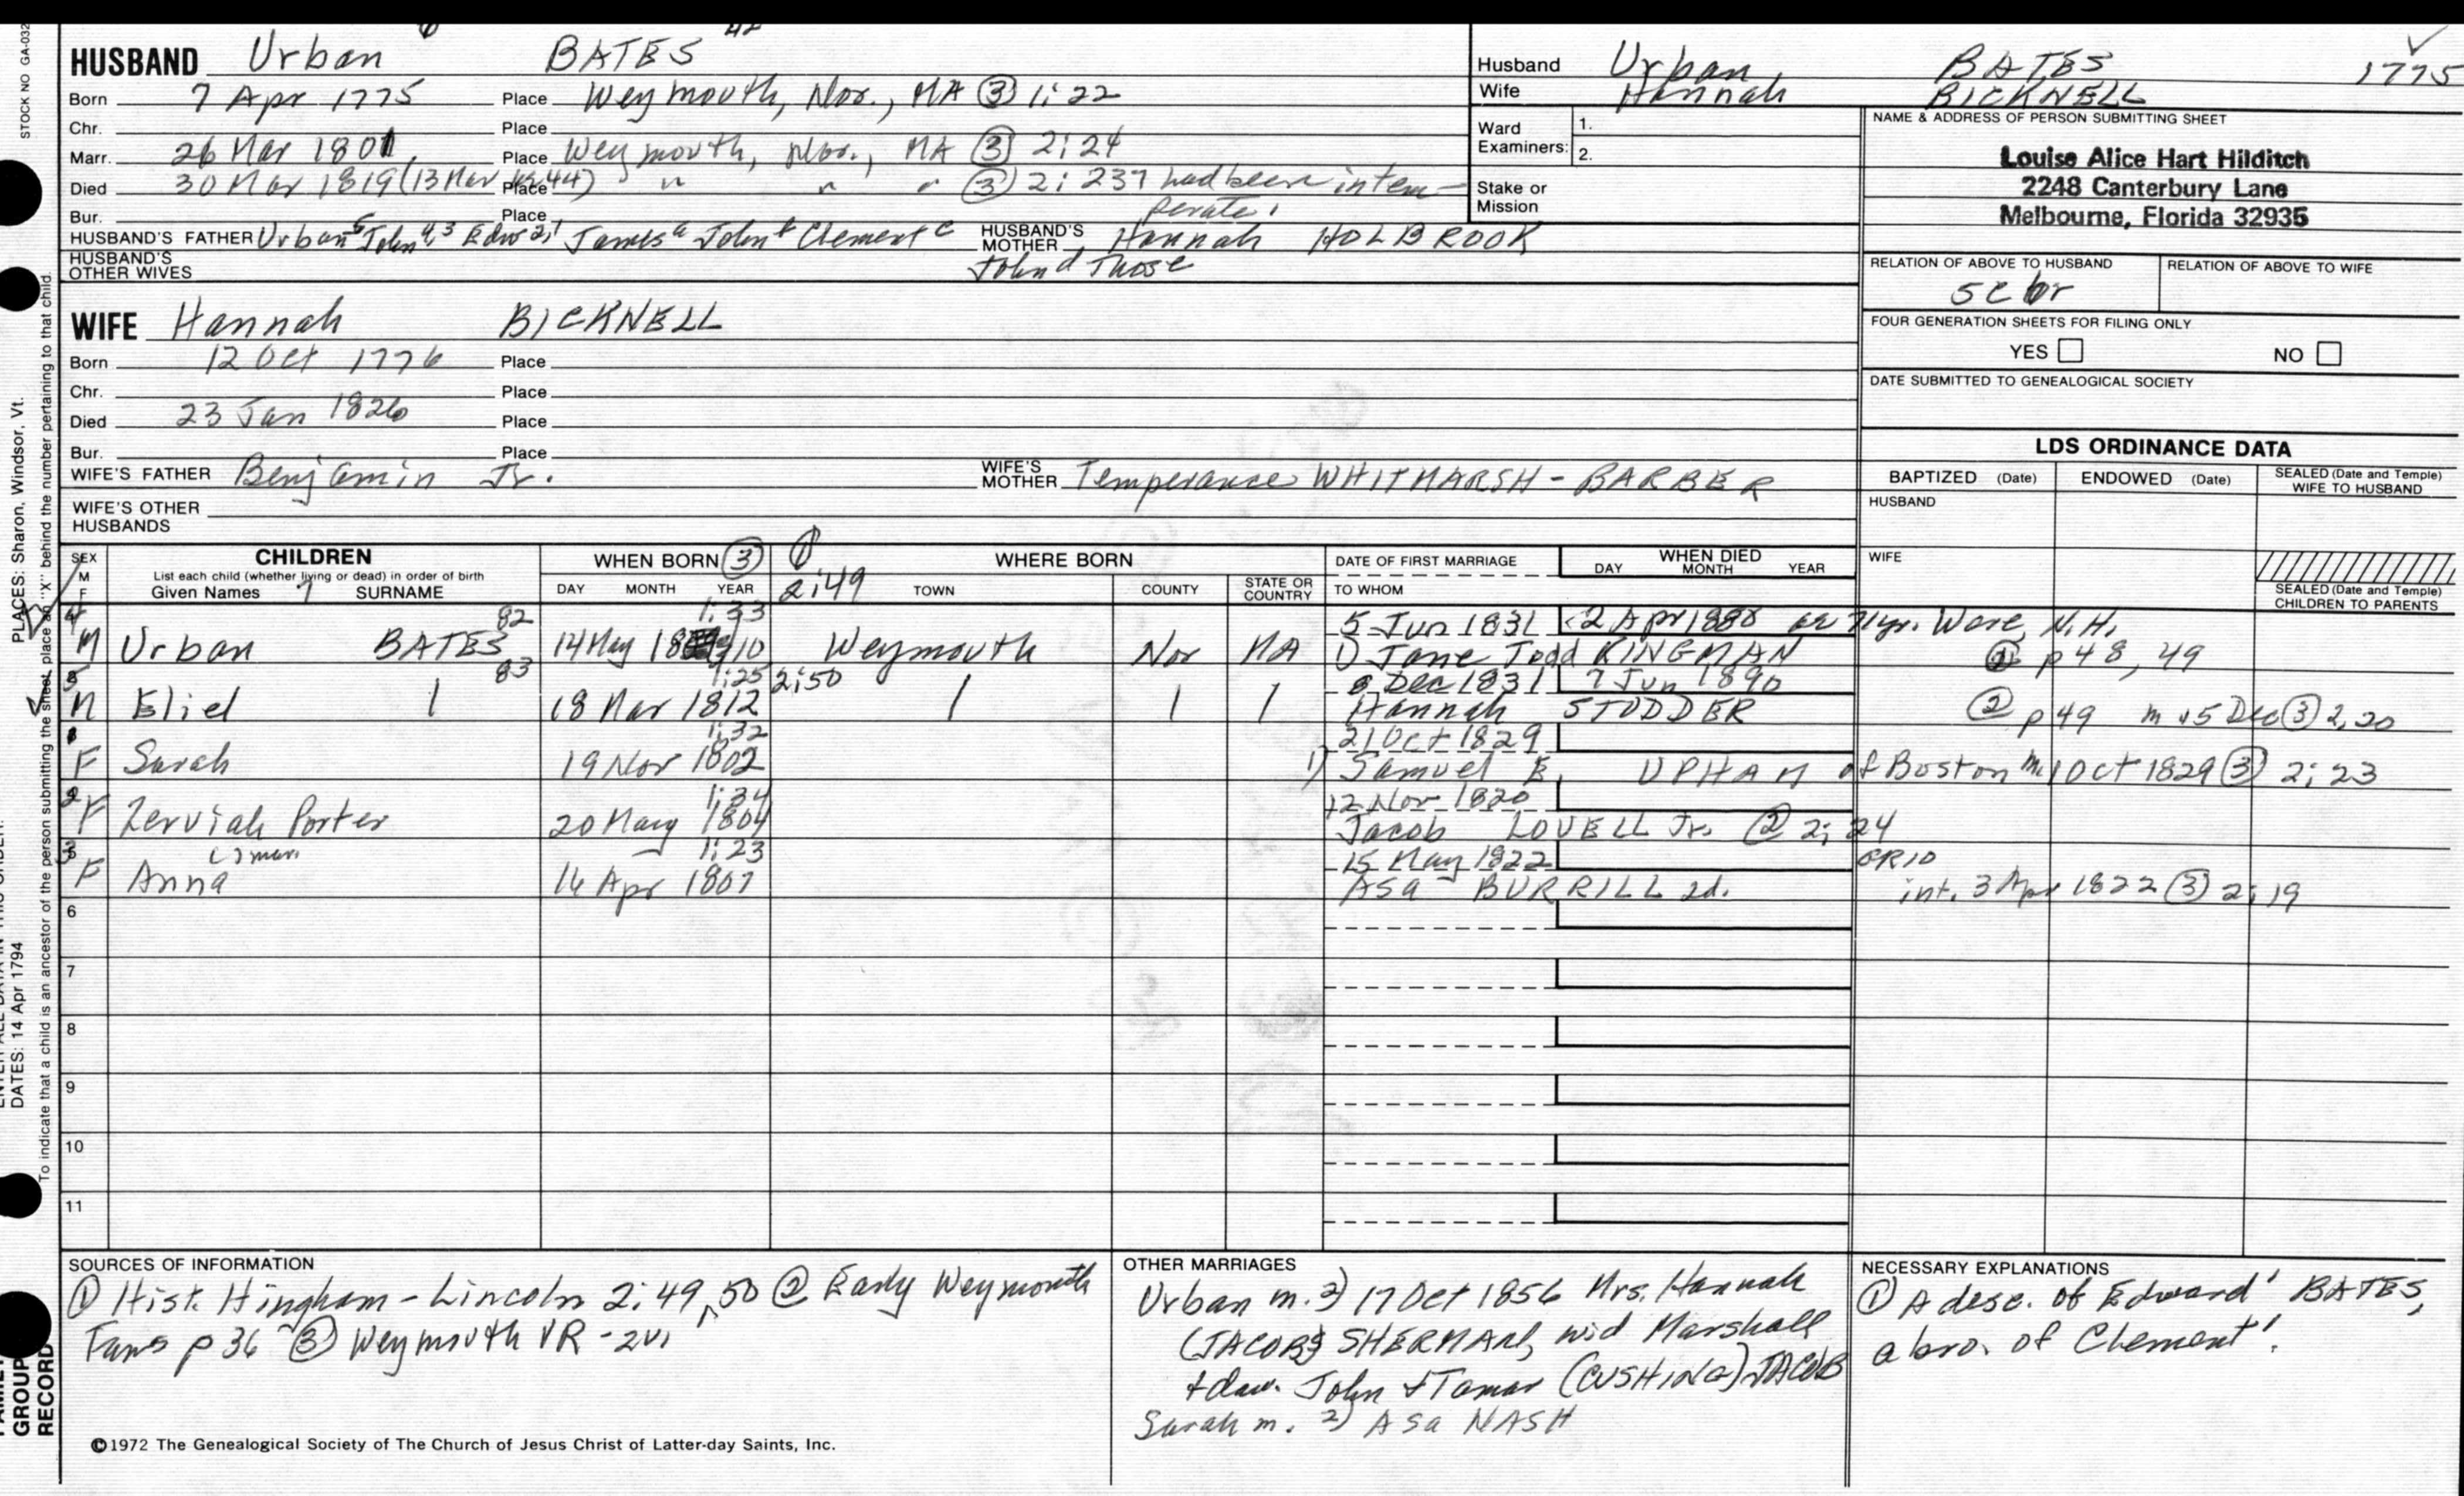 STOCK NO GA-032
HUSBAND Urban BATES 42
Born 7 Apr 1775 Place Weymouth, Nor., MA ③ 1:22
Chr. Place
Marr. 26 Mar 1801 Place Weymouth, Nor., MA ③ 2:24
Died 30 Mar 1819 (13 Mar 44) Place " " " ③ 2:237 had been intem-
Bur. Place perate.
HUSBAND'S FATHER Urban John Edw James John Clement HUSBAND'S MOTHER Hannah HOLBROOK
HUSBAND'S OTHER WIVES John Those
Husband Urban BATES 1775
Wife Hannah BICKNELL
Ward Examiners: 1.
2.
Stake or Mission
NAME & ADDRESS OF PERSON SUBMITTING SHEET
Louise Alice Hart Hilditch
2248 Canterbury Lane
Melbourne, Florida 32935
RELATION OF ABOVE TO HUSBAND RELATION OF ABOVE TO WIFE
5c br
FOUR GENERATION SHEETS FOR FILING ONLY
YES NO
DATE SUBMITTED TO GENEALOGICAL SOCIETY
WIFE Hannah BICKNELL
Born 12 Oct 1776 Place
Chr. Place
Died 23 Jan 1826 Place
Bur. Place
WIFE'S FATHER Benjamin Jr. WIFE'S MOTHER Temperance WHITMARSH - BARBER
WIFE'S OTHER HUSBANDS
LDS ORDINANCE DATA
BAPTIZED (Date) ENDOWED (Date) SEALED (Date and Temple) WIFE TO HUSBAND
HUSBAND
WIFE
SEALED (Date and Temple) CHILDREN TO PARENTS
SEX M F CHILDREN WHEN BORN ③ ① WHERE BORN DATE OF FIRST MARRIAGE WHEN DIED
List each child (whether living or dead) in order of birth DAY MONTH YEAR
Given Names 7 SURNAME DAY MONTH YEAR 2:49 TOWN COUNTY STATE OR COUNTRY TO WHOM
4 82 1:33 5 Jun 1831 2 Apr 1880 ae 71yr. Ware, N.H.
M Urban BATES 14 May 18 10 Weymouth Nor MA 1) Jane Todd KINGMAN p 48, 49
5 83 1:25 2:50 8 Dec 1831 7 Jun 1890
M Eliel 18 Mar 1812 Hannah STODDER ② p 49 m 5 Dec ③ 2:20
1 1:32 21 Oct 1829
F Sarah 19 Nov 1802 1) Samuel E. UPHAM of Boston 1 Oct 1829 ③ 2:23
2 1:34 12 Nov 1820
F Zerviah Porter 20 May 1804 Jacob LOVELL Jr. ② 2:24
3 1:23 15 May 1822 GR10
F Anna 14 Apr 1807 Asa BURRILL 2d. int. 3 Apr 1822 ③ 2:19
6
7
8
9
10
11
SOURCES OF INFORMATION
① Hist. Hingham - Lincoln 2:49,50 ② Early Weymouth
Fams p 36 ③ Weymouth VR - 2v.
©1972 The Genealogical Society of The Church of Jesus Christ of Latter-day Saints, Inc.
OTHER MARRIAGES
Urban m. 2) 17 Oct 1856 Mrs. Hannah
(JACOB) SHERMAN, wid Marshall
+ dau. John + Tamar (CUSHING) JACOB
Sarah m. 2) Asa NASH
NECESSARY EXPLANATIONS
① A desc. of Edward¹ BATES,
a bro. of Clement¹.
PLACES: Sharon, Windsor, Vt.
DATES: 14 Apr 1794
To indicate that a child is an ancestor of the person submitting the sheet, place an "X" behind the number pertaining to that child.
GROUP
RECORD